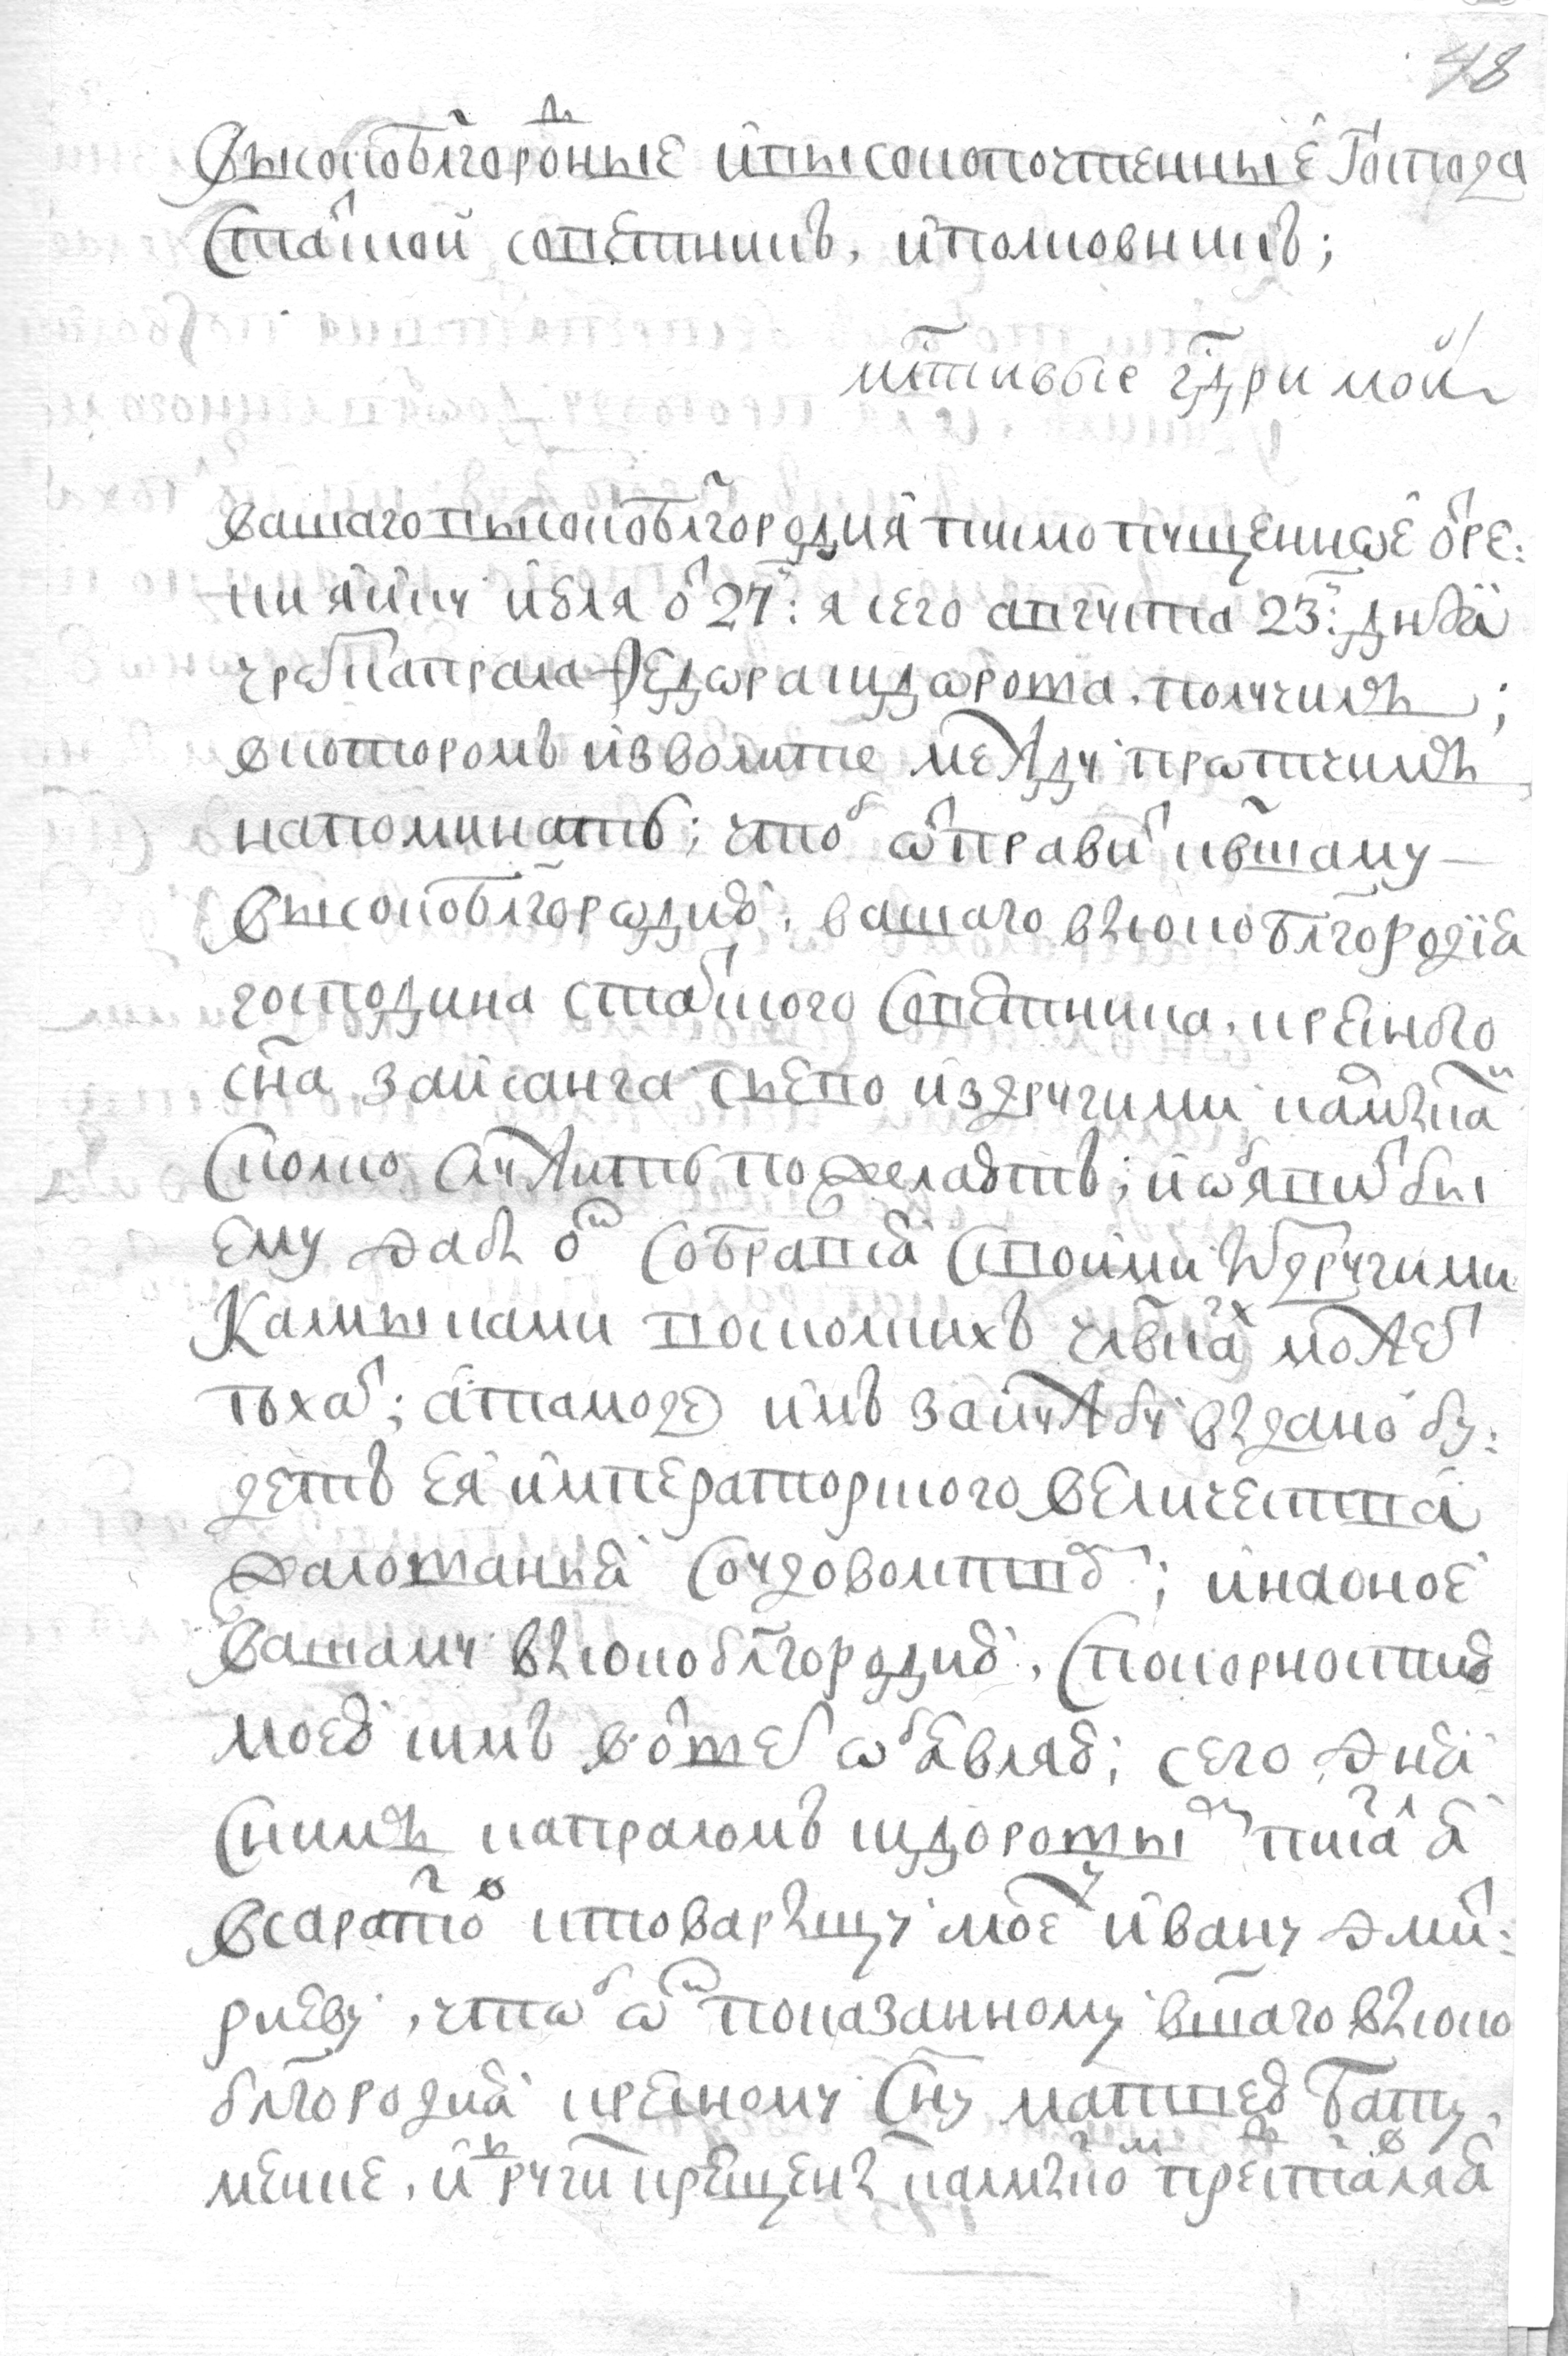 48
Высокоблгородные и высокопочтенные Гспода
Статской советникъ, и полковникъ;
млстивые гдри мои
вашаго высокоблгородия писмо пущенное от ре:
ки яику июля от 27: я сего августа 23: дня
чрез капрала Федора сидорова, получилъ;
в котором изволите между протчимъ
напоминать; чтоб отправит к вшему
высокоблгородию, вашаго высокоблгородия
господина статского советника, крестного
сна зайсанга его из другими калмыка
сколко служить пожелаютъ; и объявит бы
ему дабы от собрался с своими и з другими
Калмыками сколких члвкахъ может
ехат; а тамо де имъ за службу выдано бу:
детъ ея императорского величества
жалованья со удоволством; и на оное
вашему высокоблгородию, с покорностию
моею симъ в ответ объявляю; сего дня
с нимъ капраломъ сидоровы писалъ я
в саратов к товарыщу моему ивану дмит:
риеву, чтоб от показанному вшаго высоко
блгородия крестному сну матвею бату
менке, и другим крещеным калмыком представляя